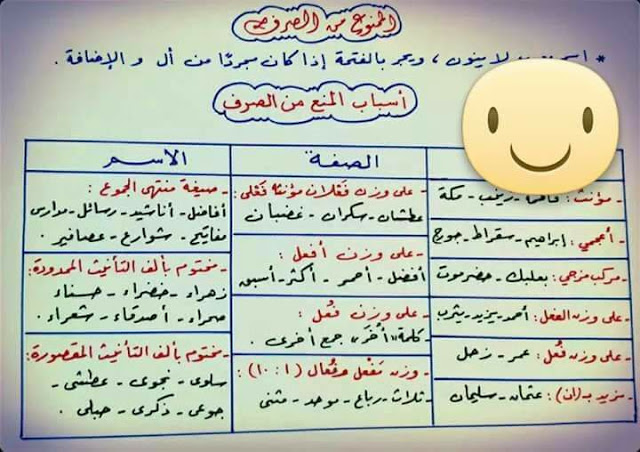 الممنوع من الصرف
* اسم لا ينون ، ويجر بالفتحة إذا كان مجردًا من أل و الإضافة .
أسباب المنع من الصرف
الصفة
الاسم
- مؤنث : - زينب - مكة
- أعجمي : إبراهيم - سقراط - جورج
- مركب مزجي : بعلبك - حضرموت
- على وزن الفعل : أحمد - يزيد - يثرب
- على وزن فُعَل : عمر - زحل
- مزيد بـ (ان) : عثمان - سليمان
- على وزن فَعْلان مؤنثه فَعْلى :
عطشان - سكران - غضبان
- على وزن أفعل :
أفضل - أحمر - أكثر - أسبق
- على وزن فُعَل :
- كلمة " أُخَر " جمع أخرى .
- وزن مَفْعل و فُعال ( ١ : ١٠ ) :
- ثلاث - رباع - موحد - مثنى
- صيغة منتهى الجموع :
أفاضل - أناشيد - رسائل - مدارس
مفاتيح - شوارع - عصافير .
- مختوم بألف التأنيث الممدودة :
زهراء - خضراء - حسناء
صحراء - أصدقاء - شعراء .
- مختوم بألف التأنيث المقصورة :
سلوى - نجوى - عطشى -
جوعى - ذكرى - حبلى .